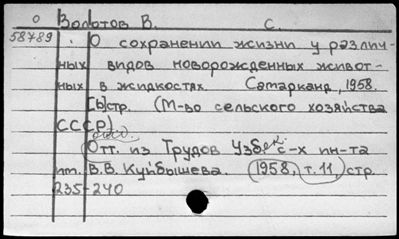 о Золотов В. С.
58789 О сохранении жизни у различ-
ных видов новорожденных живот-
ных в жидкостях. Самарканд, 1958.
[6]стр. (М-во сельского хозяйства
СССР)
Отт. из Трудов Узбек с-х ин-та
им. В.В. Куйбышева. (1958, т.11, стр.
235-240